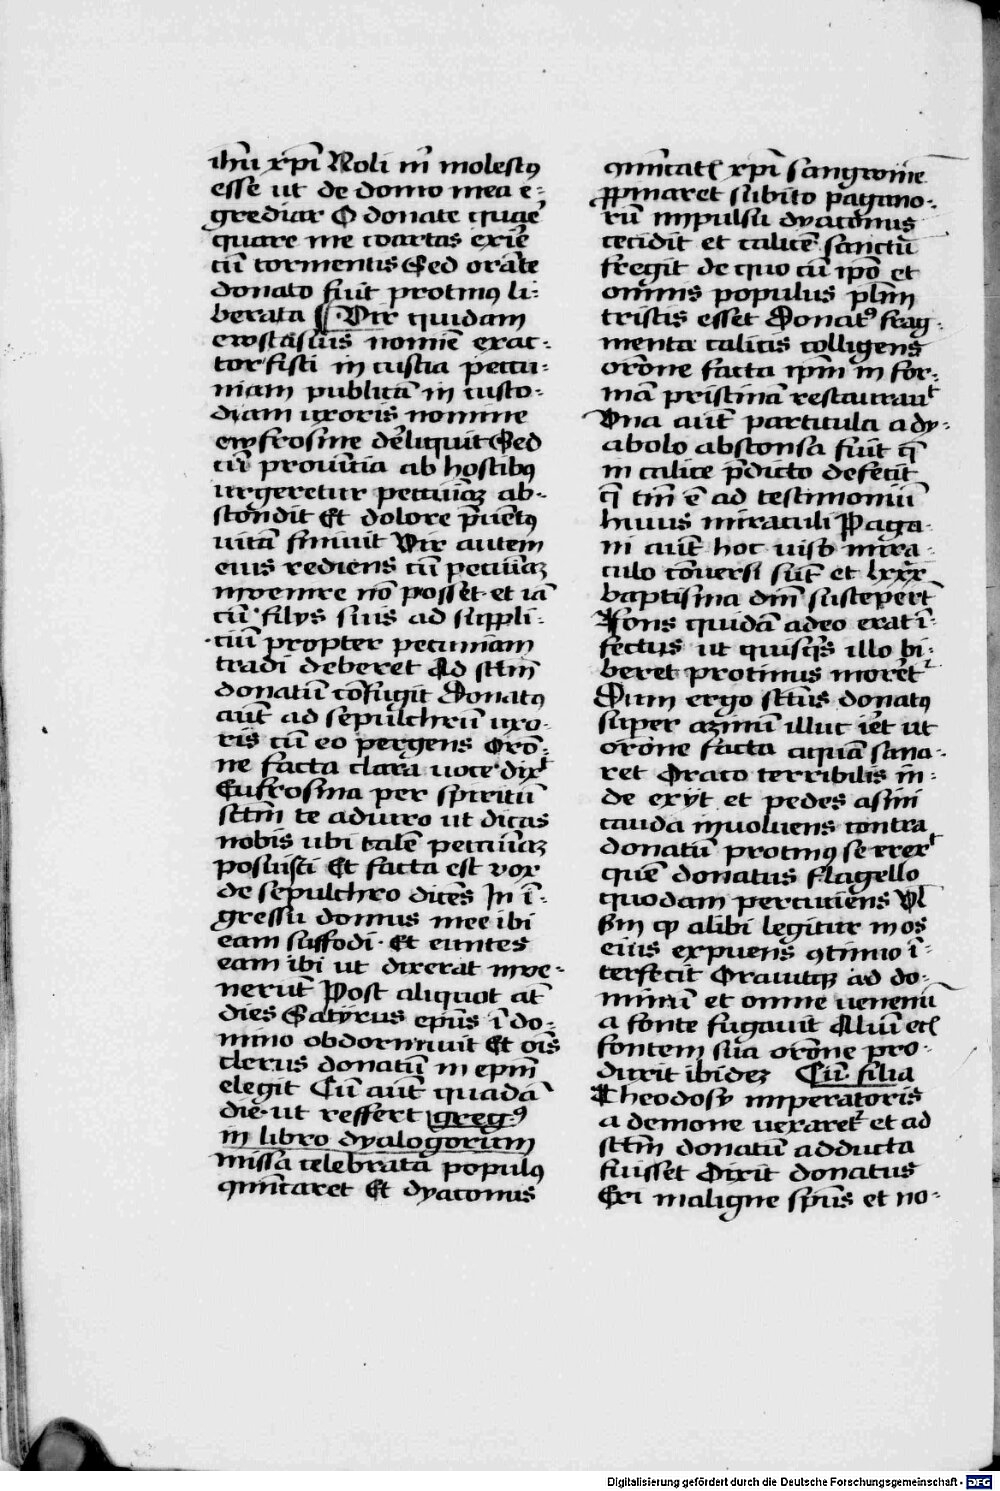 ihū xp̄i Noli m̄ molestꝰ
esse ut de domo mea e-
grediar O donate quaē
quare me coartas exire
cū tormentis Sed orāte
donato fuit protinꝰ li-
berata ¶ Vir quidam
ewstasius nomīe exac-
tor fisci in tuscia pecu-
niam publicā in custo-
diam uxoris nomine
ewfrosine dēliquit Sed
cū prouītia ab hostibꝰ
urgeretur pecuīaꝫ ab-
scondit Et dolore p̄uētꝰ
uitā finiuit Vir autem
eius rediens cū pecuīaꝫ
inuenire nō posset et iā
cū filys suis ad suppli-
ciū propter pecuniam
tradi deberet Ad sctm̄
donatū cōfugit Donatꝰ
aūt ad sepulchrū uxo-
ris cū eo pergens Orō-
ne facta clara uoce dixͭ
Eufrosina per spiritū
sctm̄ te adiuro ut dicas
nobis ubi talē pecuīaꝫ
posuisti Et facta est vox
de sepulchro dicēs In ī-
gressu domus mee ibi
eam suffodi· Et euntes
eam ibi ut dixerat inue-
nerūt Post aliquot at̄
dies Satyrus ep̄us ī do-
mino obdormiuit Et oīs
clerus donatū in ep̄m
elegit Cū aūt quadā
die· ut reffert greg·ꝰ
in libro dyalogorum
missa celebrata populꝰ
qm̄icaret Et dyaconus
qm̄icatꝭ xp̄i sangwinē
ꝓpinaret subito pagano-
rū impulsu dyaconus
cecidit et calicē sanctū
fregit de quo cū ip̄o et
omnis populus plm̄
tristis esset Donatꝰ frag-
menta calicis colligens
orōne facta ip̄m in for-
mā pristinam restaurauͭ
Vna aūt particula a dy-
abolo absconsa fuit q̄
in calice p̄dicto defecit
q̄ tm̄ ē ad testimoniū
huius miraculi Paga-
ni aūt hoc uiso mira-
culo cōuersi sūt et lxxx
baptisma dm̄ suscepert̄
Fons quidā adeo erat ī-
fectus ut quisq̄s illo bi-
beret protinus moret̄ᷣ
Dum ergo sctūs donatꝰ
super azinū illuc iēt ut
orōne facta aquā sana-
ret Draco terribilis in-
de exyt et pedes asini
cauda inuoluens contra
donatū protinꝰ se erexͭ
quē donatus flagello
quodam percutiens Vl̄
sm̄ qꝫ alibi legitur in os
eius expuens ꝯtinuo ī-
terfecit Orauitqꝫ ad do-
minū et omne uenenū
a fonte fugauit Aliū etꝭ
fontem sua orōne pro-
duxit ibidez Cū filia
Theodosy imperatoris
a demone uexaretᷣ et ad
sctm̄ donatū adducta
fuisset Dixit donatus
Exi maligne spūs et no-
Digitalisierung gefördert durch die Deutsche Forschungsgemeinschaft - DFG